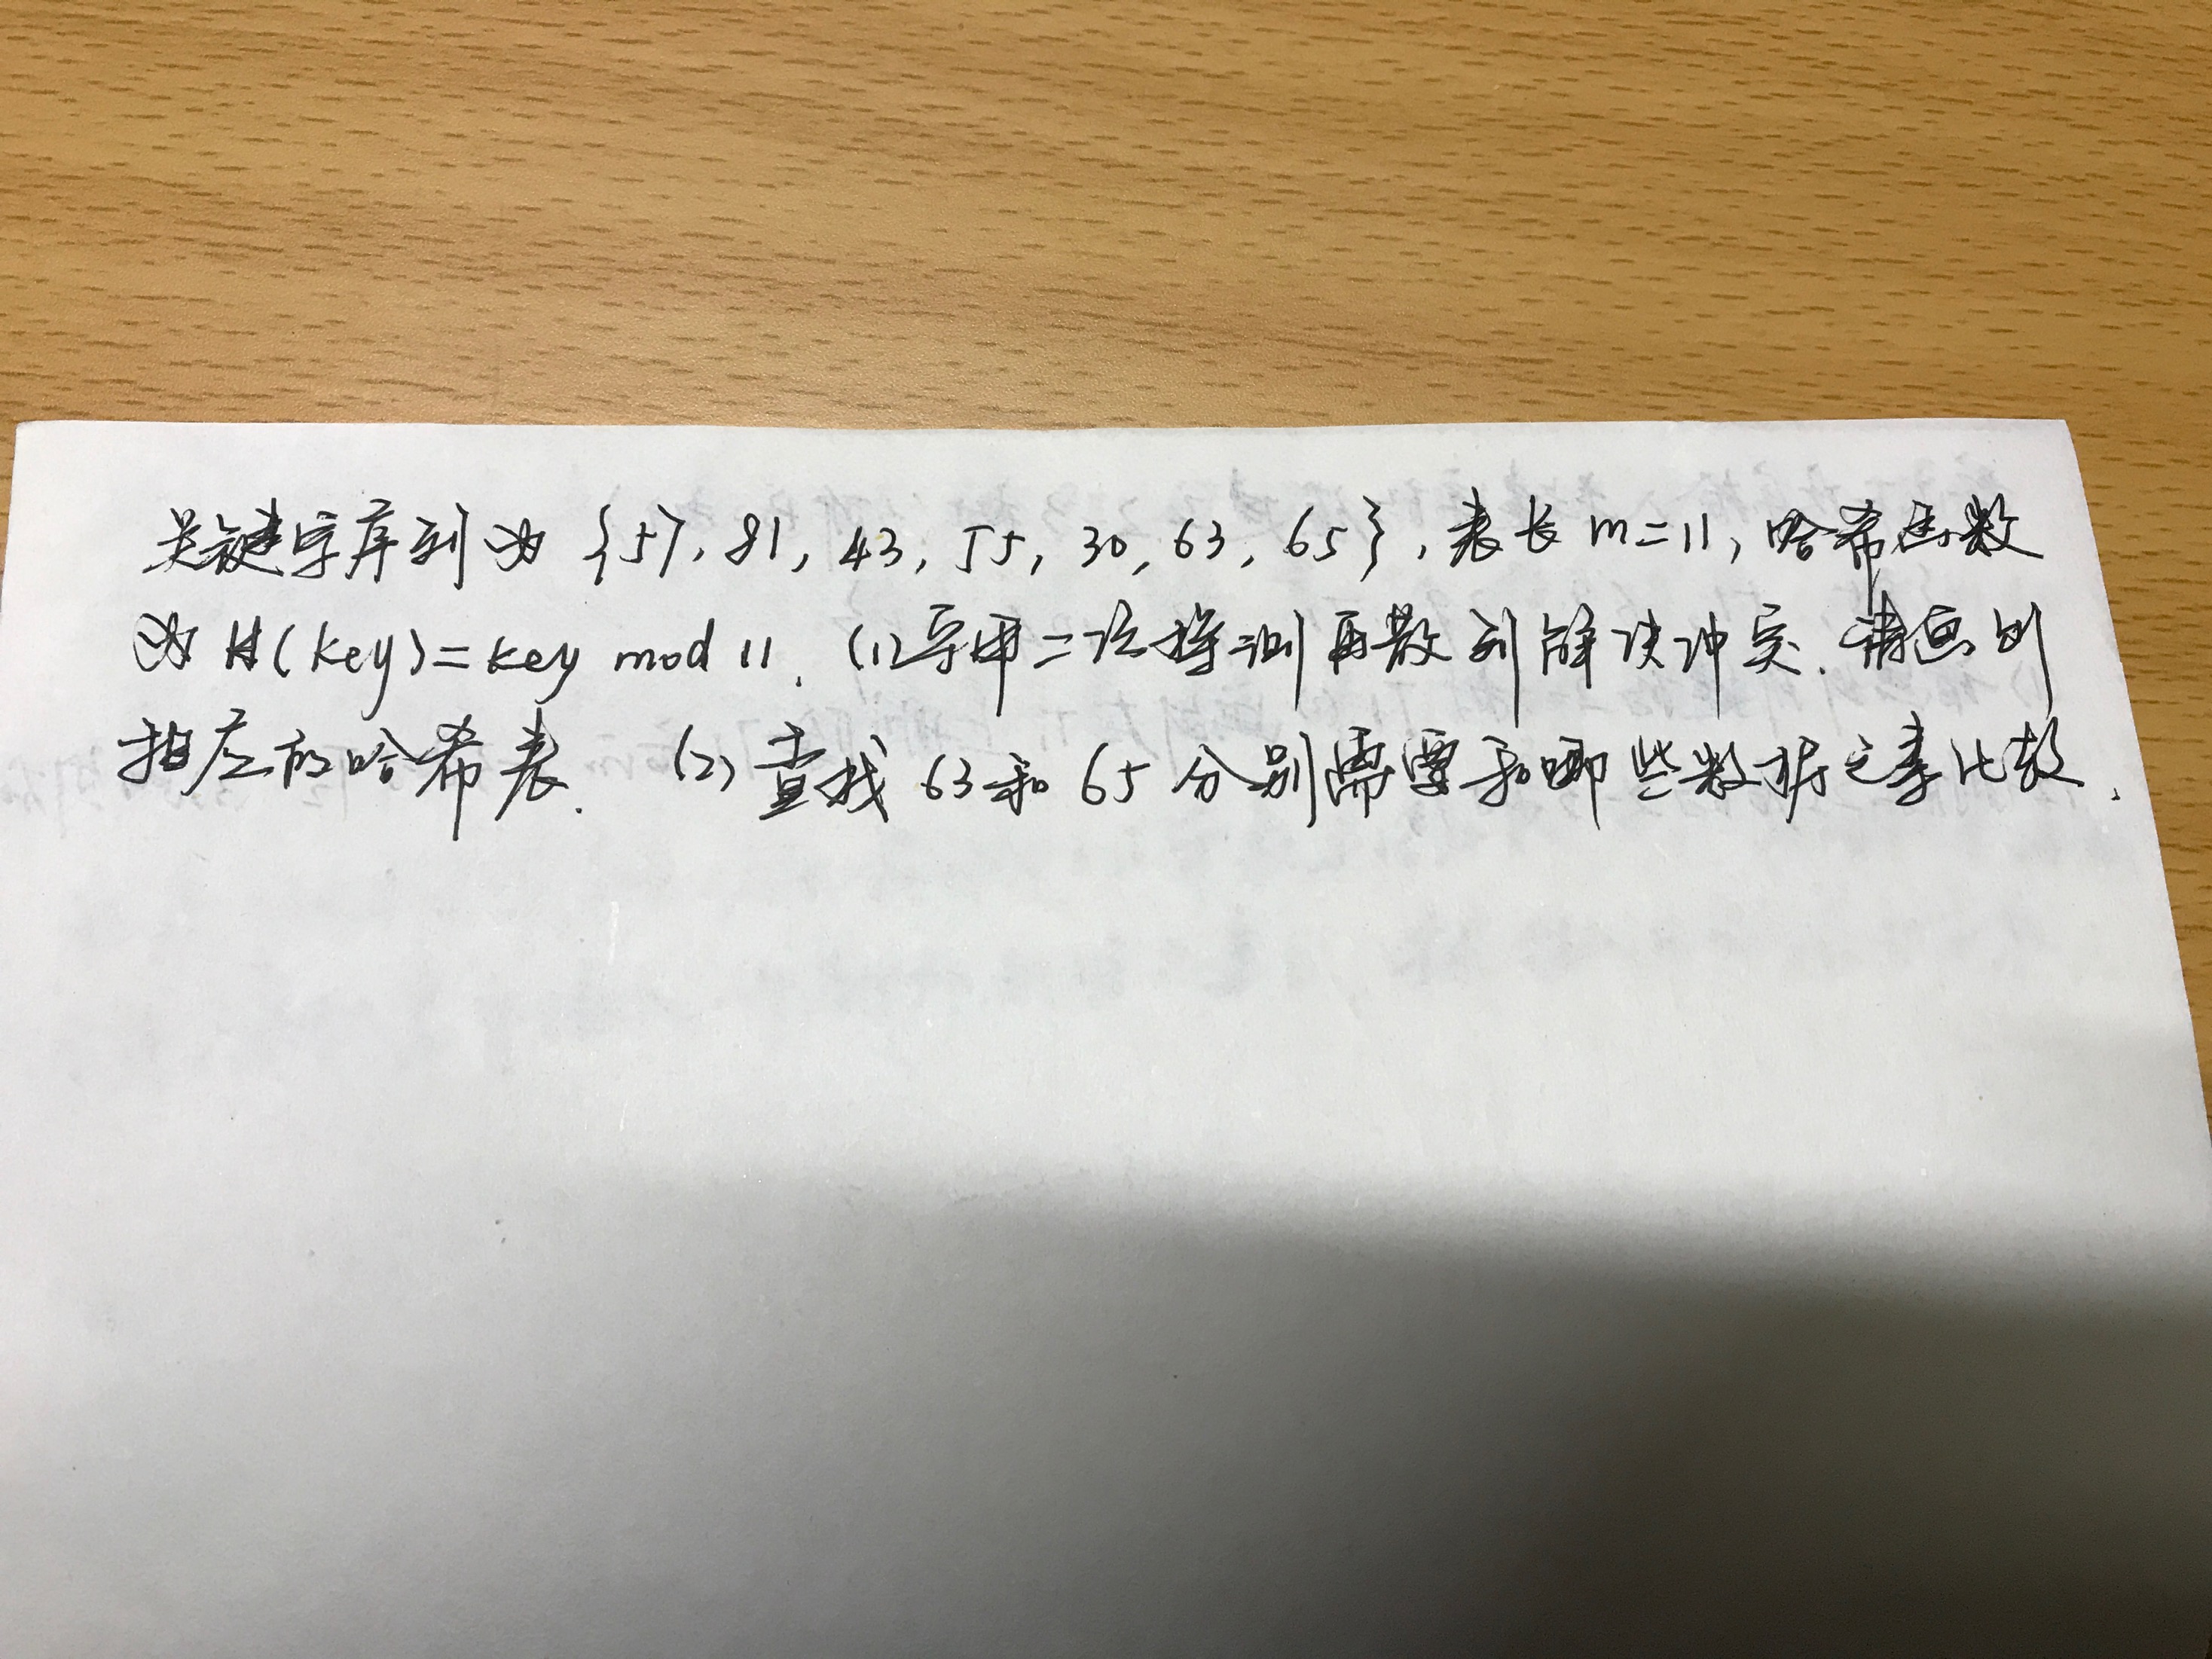 关键字序列为{57, 81, 43, 55, 30, 63, 65}, 表长m=11, 哈希函数
为H(key)=key mod 11. (1)采用二次探测再散列解决冲突. 请画出
相应的哈希表. (2)查找63和65分别需要和哪些数据元素比较.